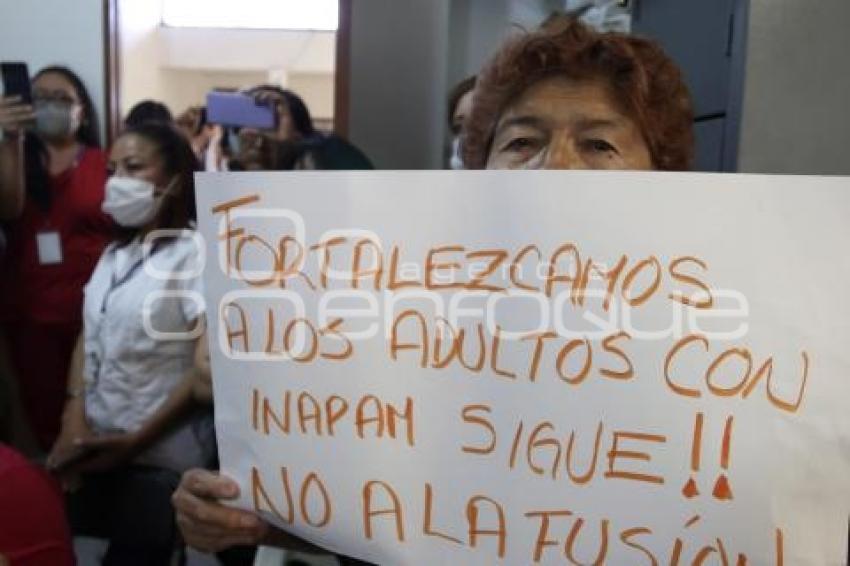 FORTALEZCAMOS
A LOS ADULTOS CON
INAPAM SIGUE!!
NO A LA FUSIÓN!
agencia
enfoque